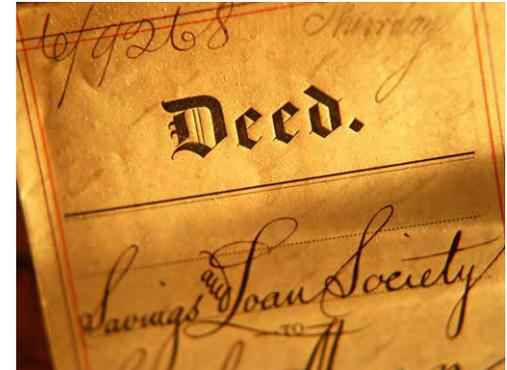 6/9268
Deed.
Savings and Loan Society
TO